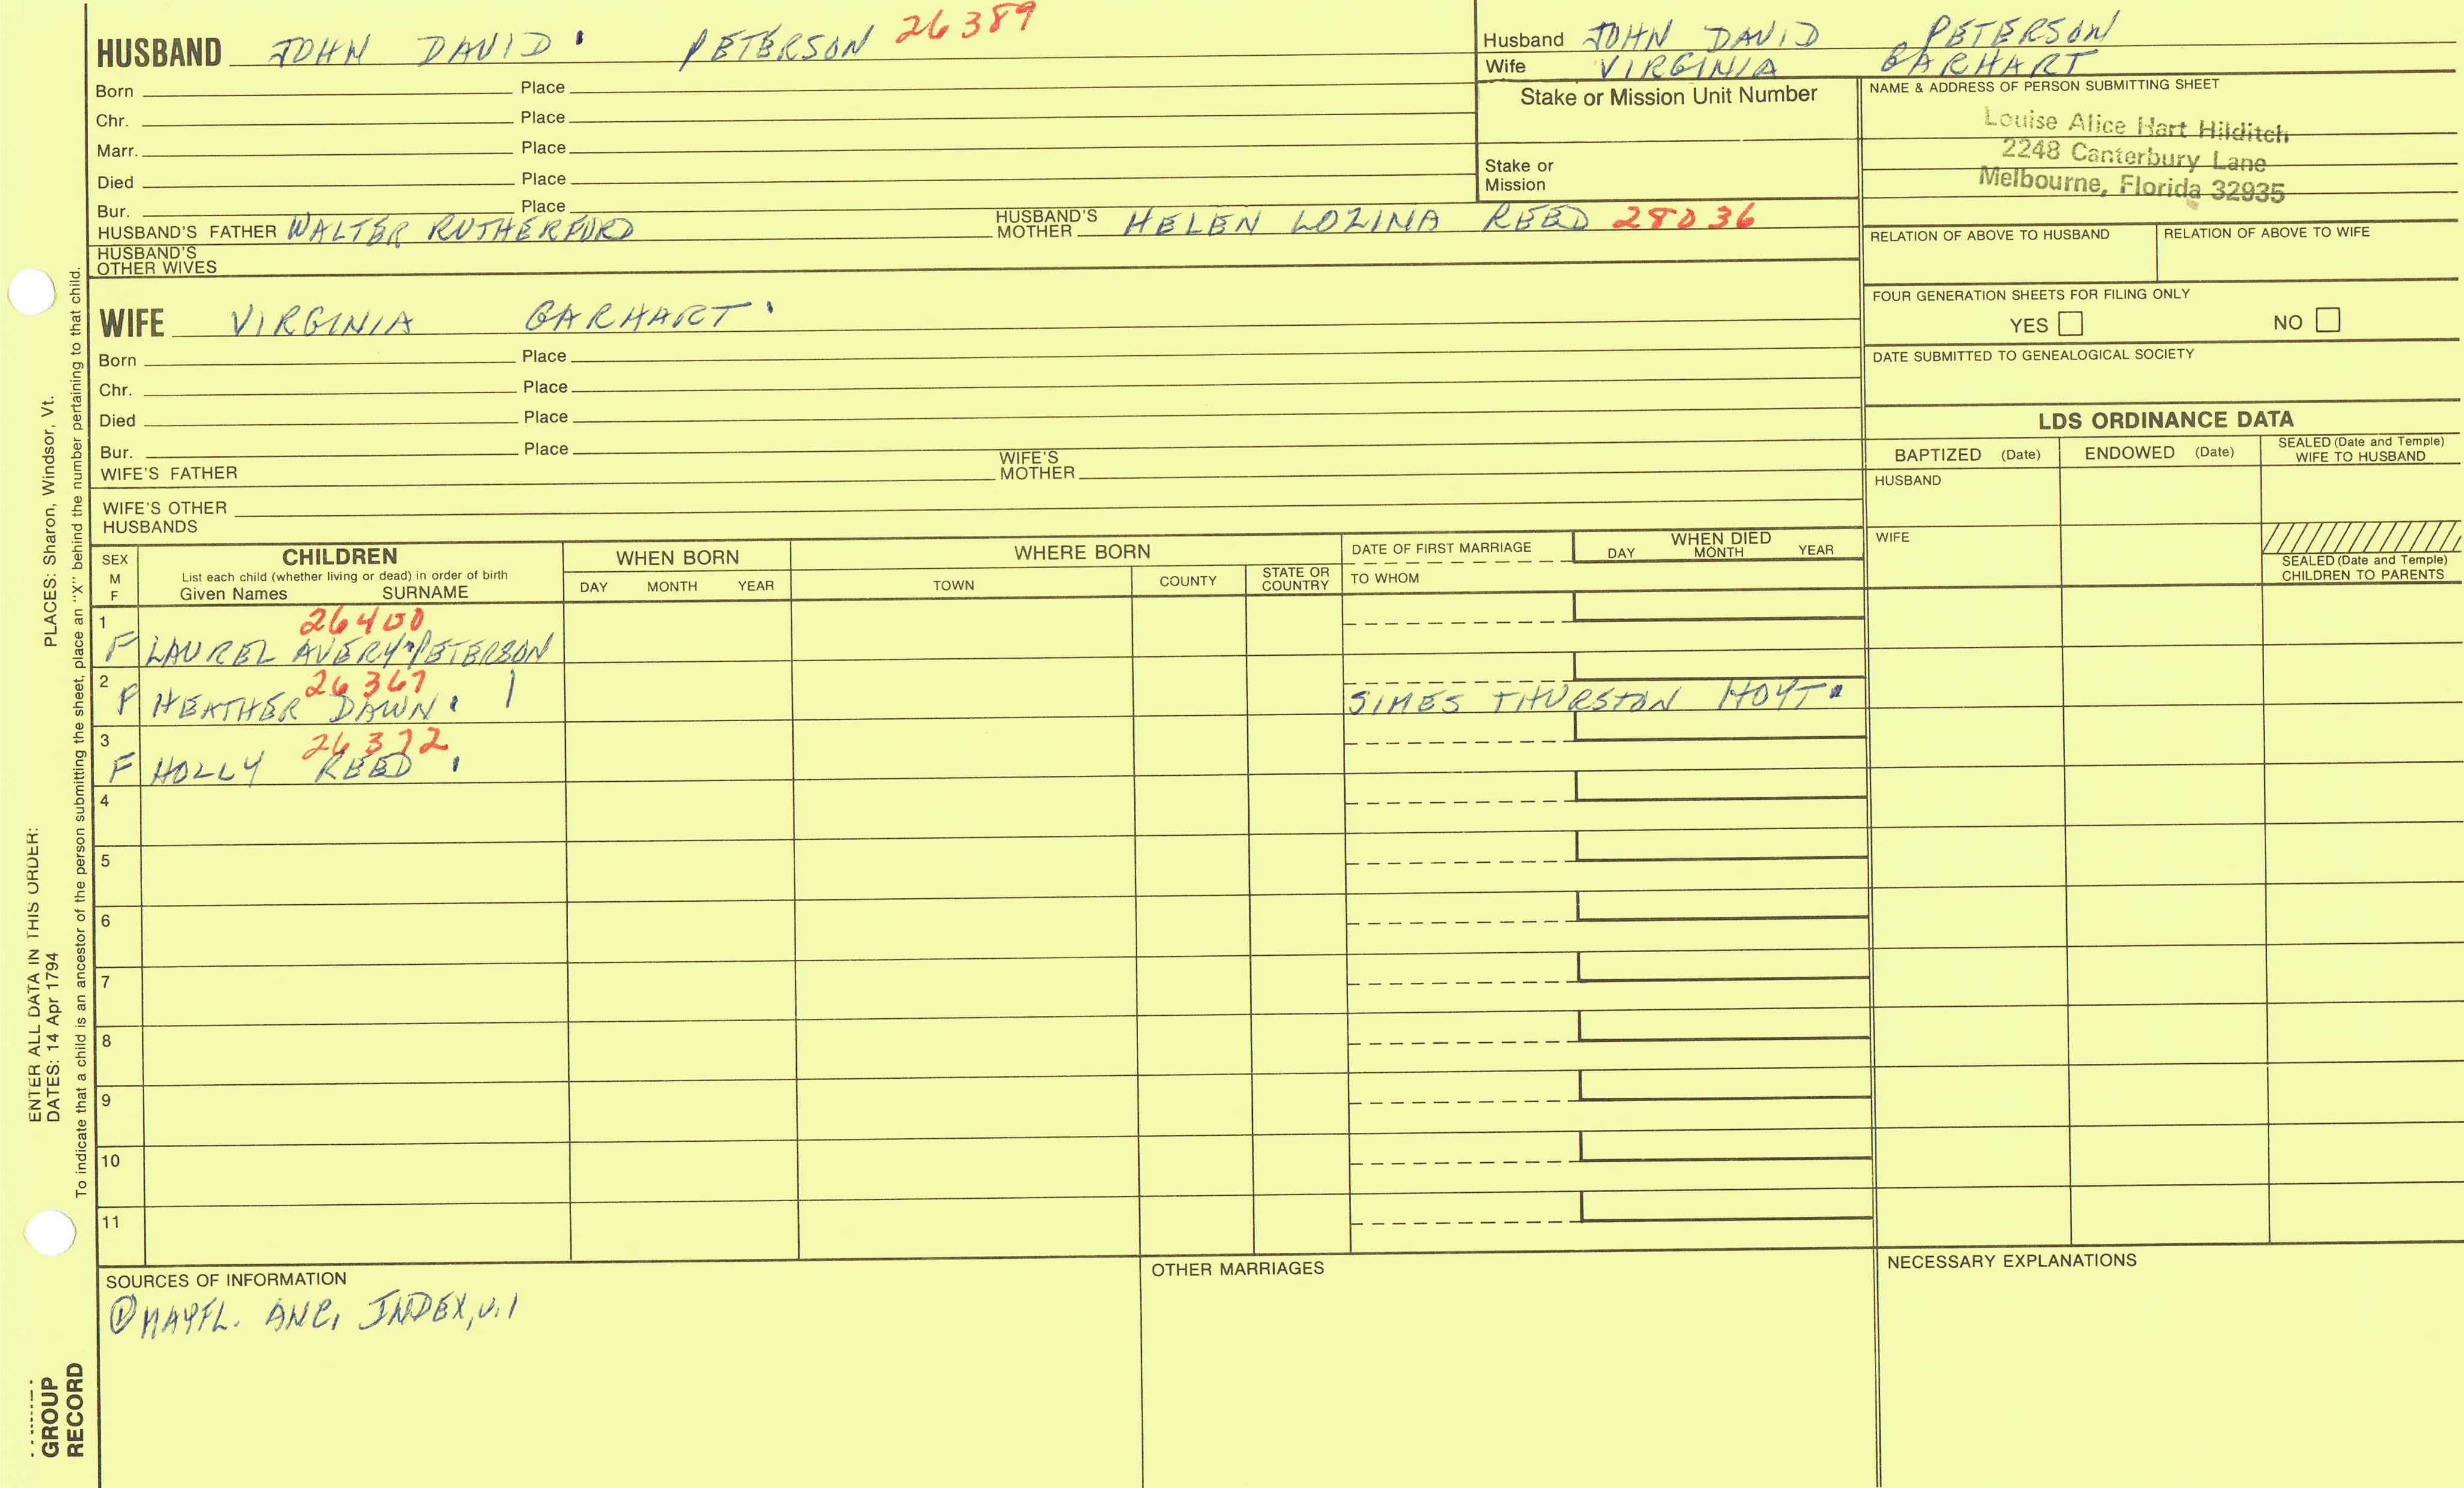 HUSBAND JOHN DAVID PETERSON 26389
Born Place
Chr. Place
Marr. Place
Died Place
Bur. Place
HUSBAND'S FATHER WALTER RUTHERFORD HUSBAND'S MOTHER HELEN LOZINA REED 28036
HUSBAND'S OTHER WIVES
WIFE VIRGINIA GARHART
Born Place
Chr. Place
Died Place
Bur. Place
WIFE'S FATHER WIFE'S MOTHER
WIFE'S OTHER HUSBANDS
Husband JOHN DAVID PETERSON
Wife VIRGINIA GARHART
Stake or Mission Unit Number
Stake or Mission
NAME & ADDRESS OF PERSON SUBMITTING SHEET
Louise Alice Hart Hilditch
2248 Canterbury Lane
Melbourne, Florida 32935
RELATION OF ABOVE TO HUSBAND RELATION OF ABOVE TO WIFE
FOUR GENERATION SHEETS FOR FILING ONLY
YES NO
DATE SUBMITTED TO GENEALOGICAL SOCIETY
LDS ORDINANCE DATA
BAPTIZED (Date) ENDOWED (Date) SEALED (Date and Temple) WIFE TO HUSBAND
HUSBAND
WIFE
SEALED (Date and Temple) CHILDREN TO PARENTS
SEX M F
CHILDREN
List each child (whether living or dead) in order of birth
Given Names SURNAME
WHEN BORN
DAY MONTH YEAR
WHERE BORN
TOWN COUNTY STATE OR COUNTRY
DATE OF FIRST MARRIAGE
TO WHOM
WHEN DIED
DAY MONTH YEAR
1 26400
F LAUREL AVERY PETERSON
2 26367
F HEATHER DAWN SIMES THURSTON HOYT
3 26372
F HOLLY REED
4
5
6
7
8
9
10
11
SOURCES OF INFORMATION
① MAYFL. ANC. INDEX, v.1
OTHER MARRIAGES
NECESSARY EXPLANATIONS
PLACES: Sharon, Windsor, Vt.
ENTER ALL DATA IN THIS ORDER:
DATES: 14 Apr 1794
To indicate that a child is an ancestor of the person submitting the sheet, place an "X" behind the number pertaining to that child.
GROUP
RECORD